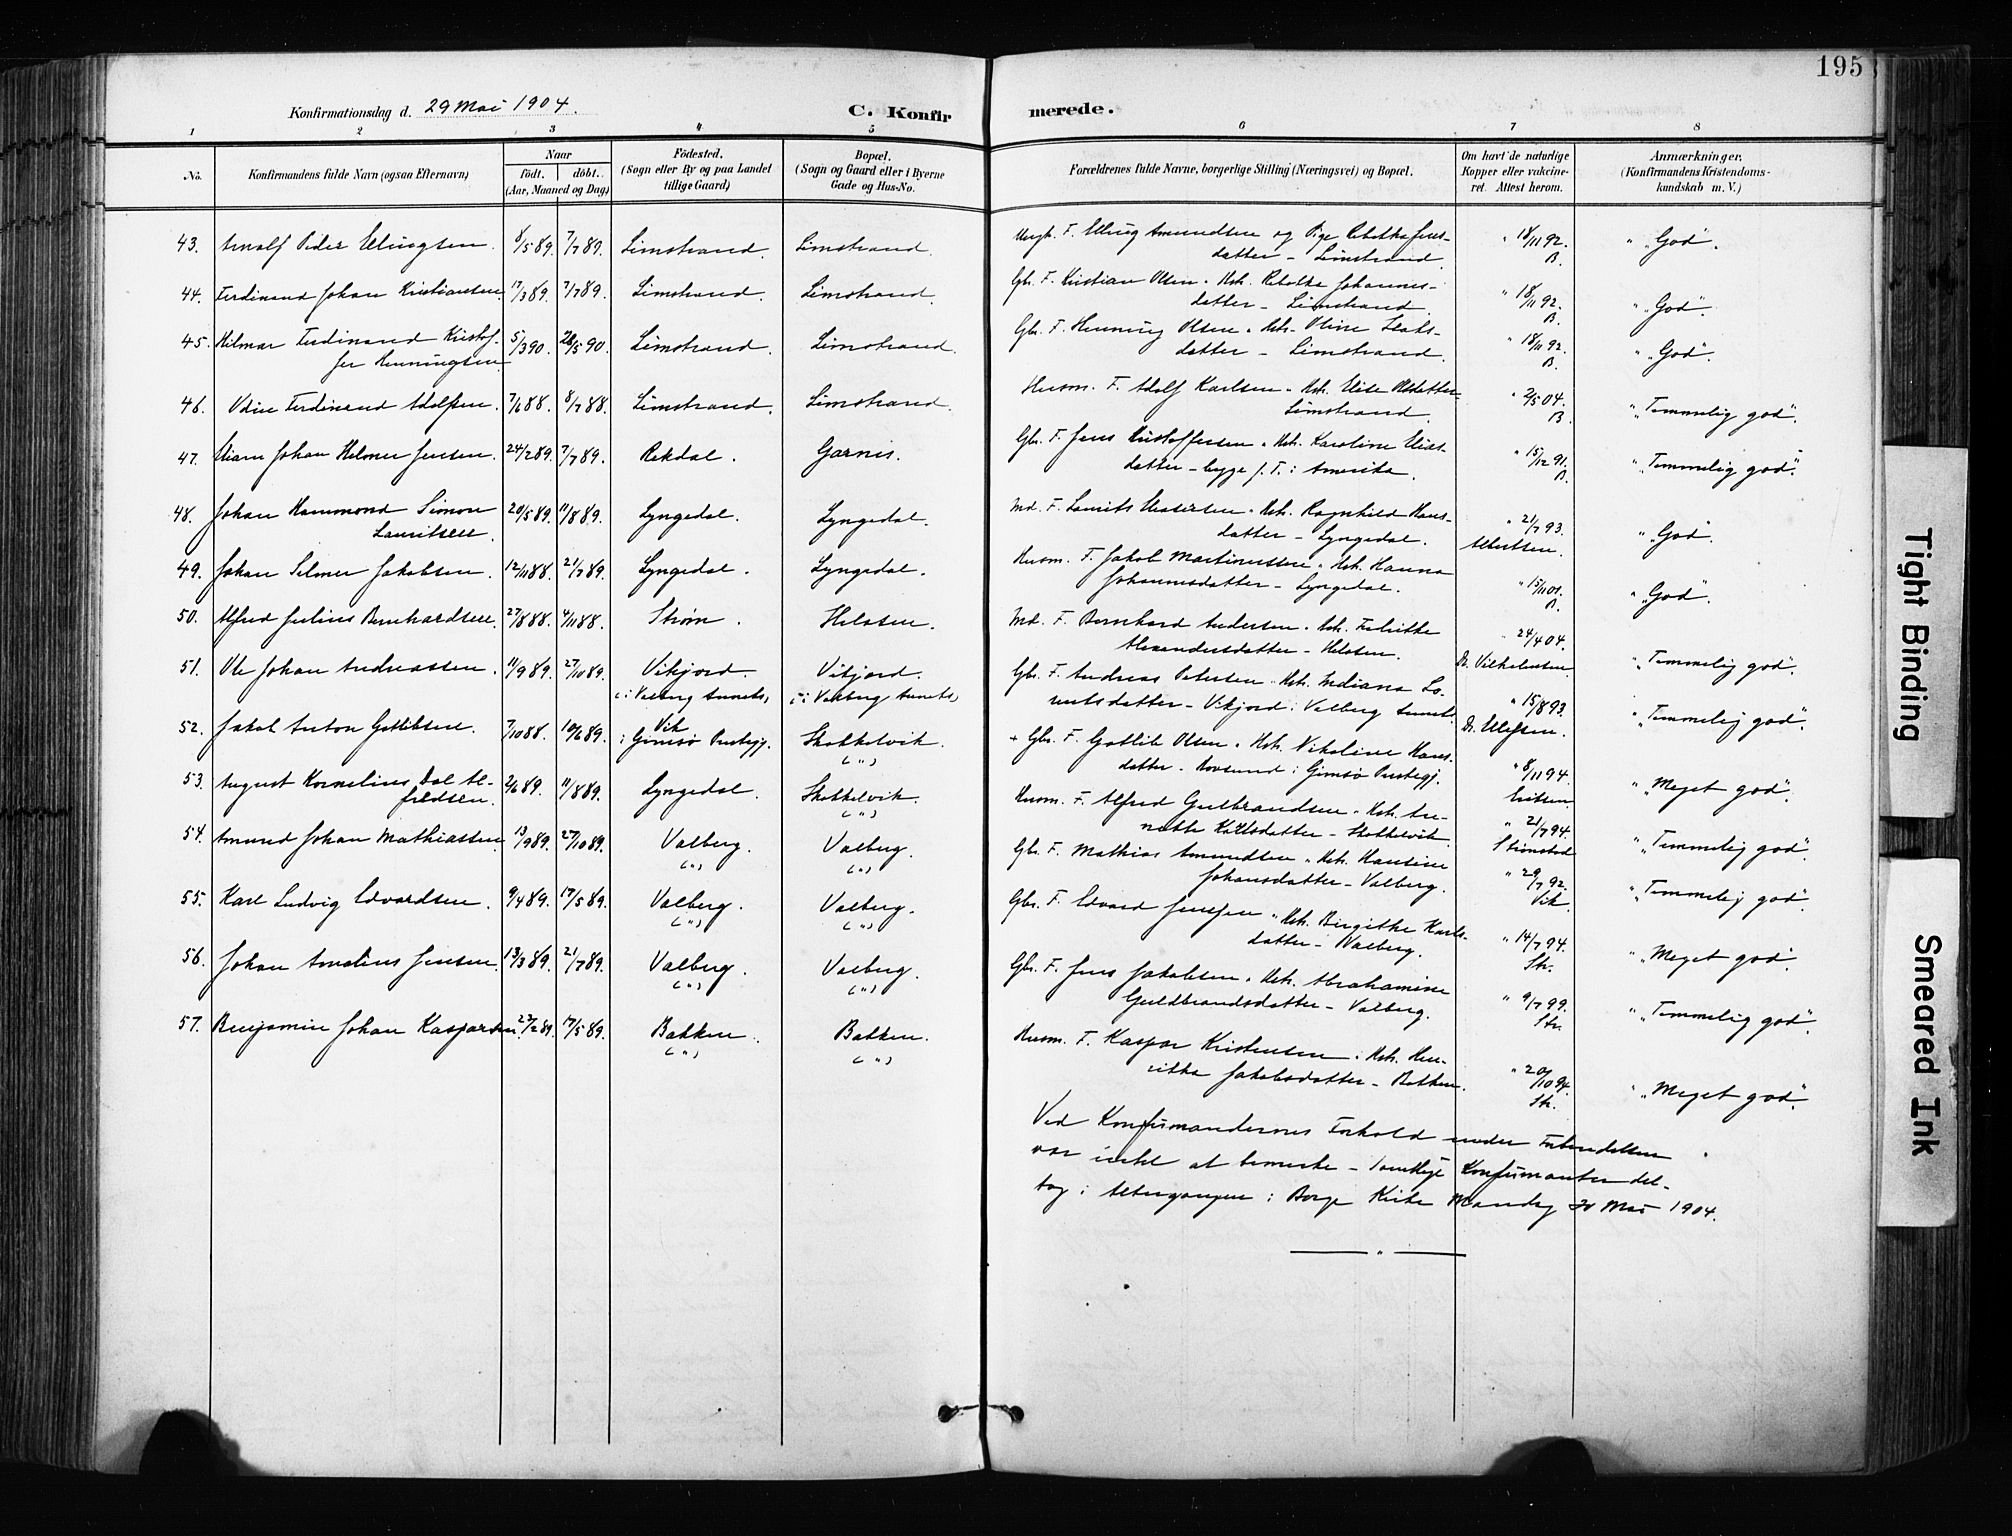 195
Konfirmationsdag d. 29 Mai 1904.
C. Konfirmerede.
1 2 3 4 5 6 7 8
No.
Konfirmandens fulde Navn (ogsaa Efternavn)
Naar
födt. döbt.
(Aar, Maaned og Dag)
Födested.
(Sogn eller By og paa Landet
tillige Gaard)
Bopæl.
(Sogn og Gaard eller i Byerne
Gade og Hus-No.
Forældrenes fulde Navne, borgerlige Stilling (Næringsvei) og Bopæl.
Om havt de naturlige
Kopper eller vaccine-
ret. Attest herom.
Anmærkninger.
(Konfirmandens Kristendoms-
kundskab m. V.)
43. Arnolf Peder Ellingsen. 8/5 89. 7/7 89. Limstrand. Limstrand. Ungk. F. Elling Amundsen og Pige Rebekka Jens-
datter – Limstrand. " 18/11 92. B. " "God".
44. Ferdinand Johan Kristiansen. 17/3 89. 7/7 89. Limstrand. Limstrand. Gbr. F. Kristian Olsen " Hst. Rebekka Johannes-
datter – Limstrand. " 18/11 92. B. " "God".
45. Hilmar Ferdinand Kristof-
fer Henningsen 5/3 90. 28/5 90. Limstrand. Limstrand. Gbr. F. Henning Olsen " Hst. Oline
datter – Limstrand. " 18/11 92. B. " "God".
46. Odin Ferdinand Adolfsen. 7/6 88. 8/7 88. Limstrand. Limstrand. Husm. F. Adolf Karlsen " Hst. Elise Olsdatter
Limstrand. " 2/5 04. B. " "Temmelig god".
47. Johan Helmer Jensen. 24/2 89. 7/7 89. Rekdal. Garnis. Gbr. F. Jens Kristoffersen " Hst. Karoline Elias-
datter – begge f. T. i Amerika. " 15/12 91. B. " "Temmelig god".
48. Johan Hammond Simon
Lauritsen. 20/5 89. 11/8 89. Lyngedal. Lyngedal. Md. F. Laurits " Hst. Ragnhild Hans-
datter – Lyngedal. " 21/7 93. Albertsen. " "God".
49. Johan Selmer Jakobsen. 12/11 88. 21/7 89. Lyngedal. Lyngedal. Husm. F. Jakob Martinussen " Hst. Hanna
Johannesdatter – Lyngedal. " 15/11 01. B. " "God".
50. Alfred Julius Bernhardsen. 27/8 88. 4/11 88. Strøm. Helosen. Md. F. Bernhard Andersen " Hst. Fredrikke
Alexandersdatter – Helosen. " 24/4 04. Dr. Vilhelmsen " "Temmelig god".
51. Ole Johan Andreassen. 11/9 89. 27/10 89. Vikjord.
(i Valberg Annets) Vikjord.
(i Valberg Annets) Gbr. F. Andreas Petersen " Hst. Indiana Lo-
rentsdatter – Vikjord i Valberg Annets. " 15/8 93. Dr. Ellefsen. " "Temmelig god".
52. Jakob Anton Gotlibsen. 7/10 88. 10/6 89. Vik
i Gimsø Prestegj. Skotkelvik.
(") + Gbr. F. Gotlib Olsen " Hst. Nikoline Hans-
datter – Hovsund i Gimsø Prestegj. " 8/11 94. Eritsen " "Meget god".
53. August Kornelius Dal Al-
fredsen. 2/6 89. 11/8 89. Lyngedal. Skotkelvik.
(") Husm. F. Alfred Gulbrandsen " Hst. An-
nette Karlsdatter – Skotkelvik. " 21/7 94. Strømstad " "Temmelig god".
54. Amund Johan Mathiassen 13/9 89. 27/10 89. Valberg.
(") Valberg.
(") Gbr. F. Mathias Amundsen " Hst. Hansine
Johansdatter – Valberg. " 29/7 92. Vik. " "Temmelig god".
55. Karl Ludvig Edvardsen. 9/4 89. 17/5 89. Valberg.
(") Valberg.
(") Gbr. F. Edvard Jensen " Hst. Birgithe Karls-
datter – Valberg. " 14/7 94. Str. " "Meget god".
56. Johan Amelius Jensen. 13/3 89. 21/7 89. Valberg.
(") Valberg.
(") Gbr. F. Jens Jakobsen " Hst. Abrahamine
Guldbrandsdatter – Valberg. " 9/7 99. Str. " "Temmelig god".
57. Benjamin Johan Kasparsen. 23/2 89. 17/5 89. Bakken.
(") Bakken.
(") Husm. F. Kaspar Kristensen " Hst. Hen-
rikka Jakobsdatter – Bakken. " 20/10 94. Str. " "Meget god".
Ved Konfirmandernes Forhold under Forberedelsen
var intet at bemerke – samtlige Konfirmanter del-
tog i Altergangen i Borge Kirke Mandag 30 Mai 1904.
Tight Binding
Smeared Ink